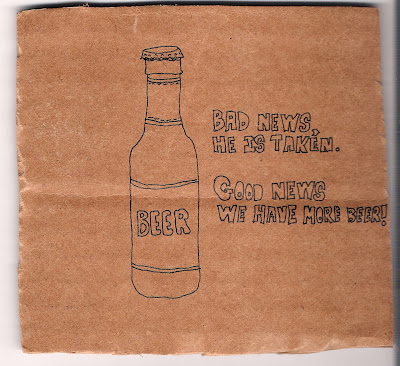 BEER
BAD NEWS,
HE IS TAKEN.
GOOD NEWS
WE HAVE MORE BEER!